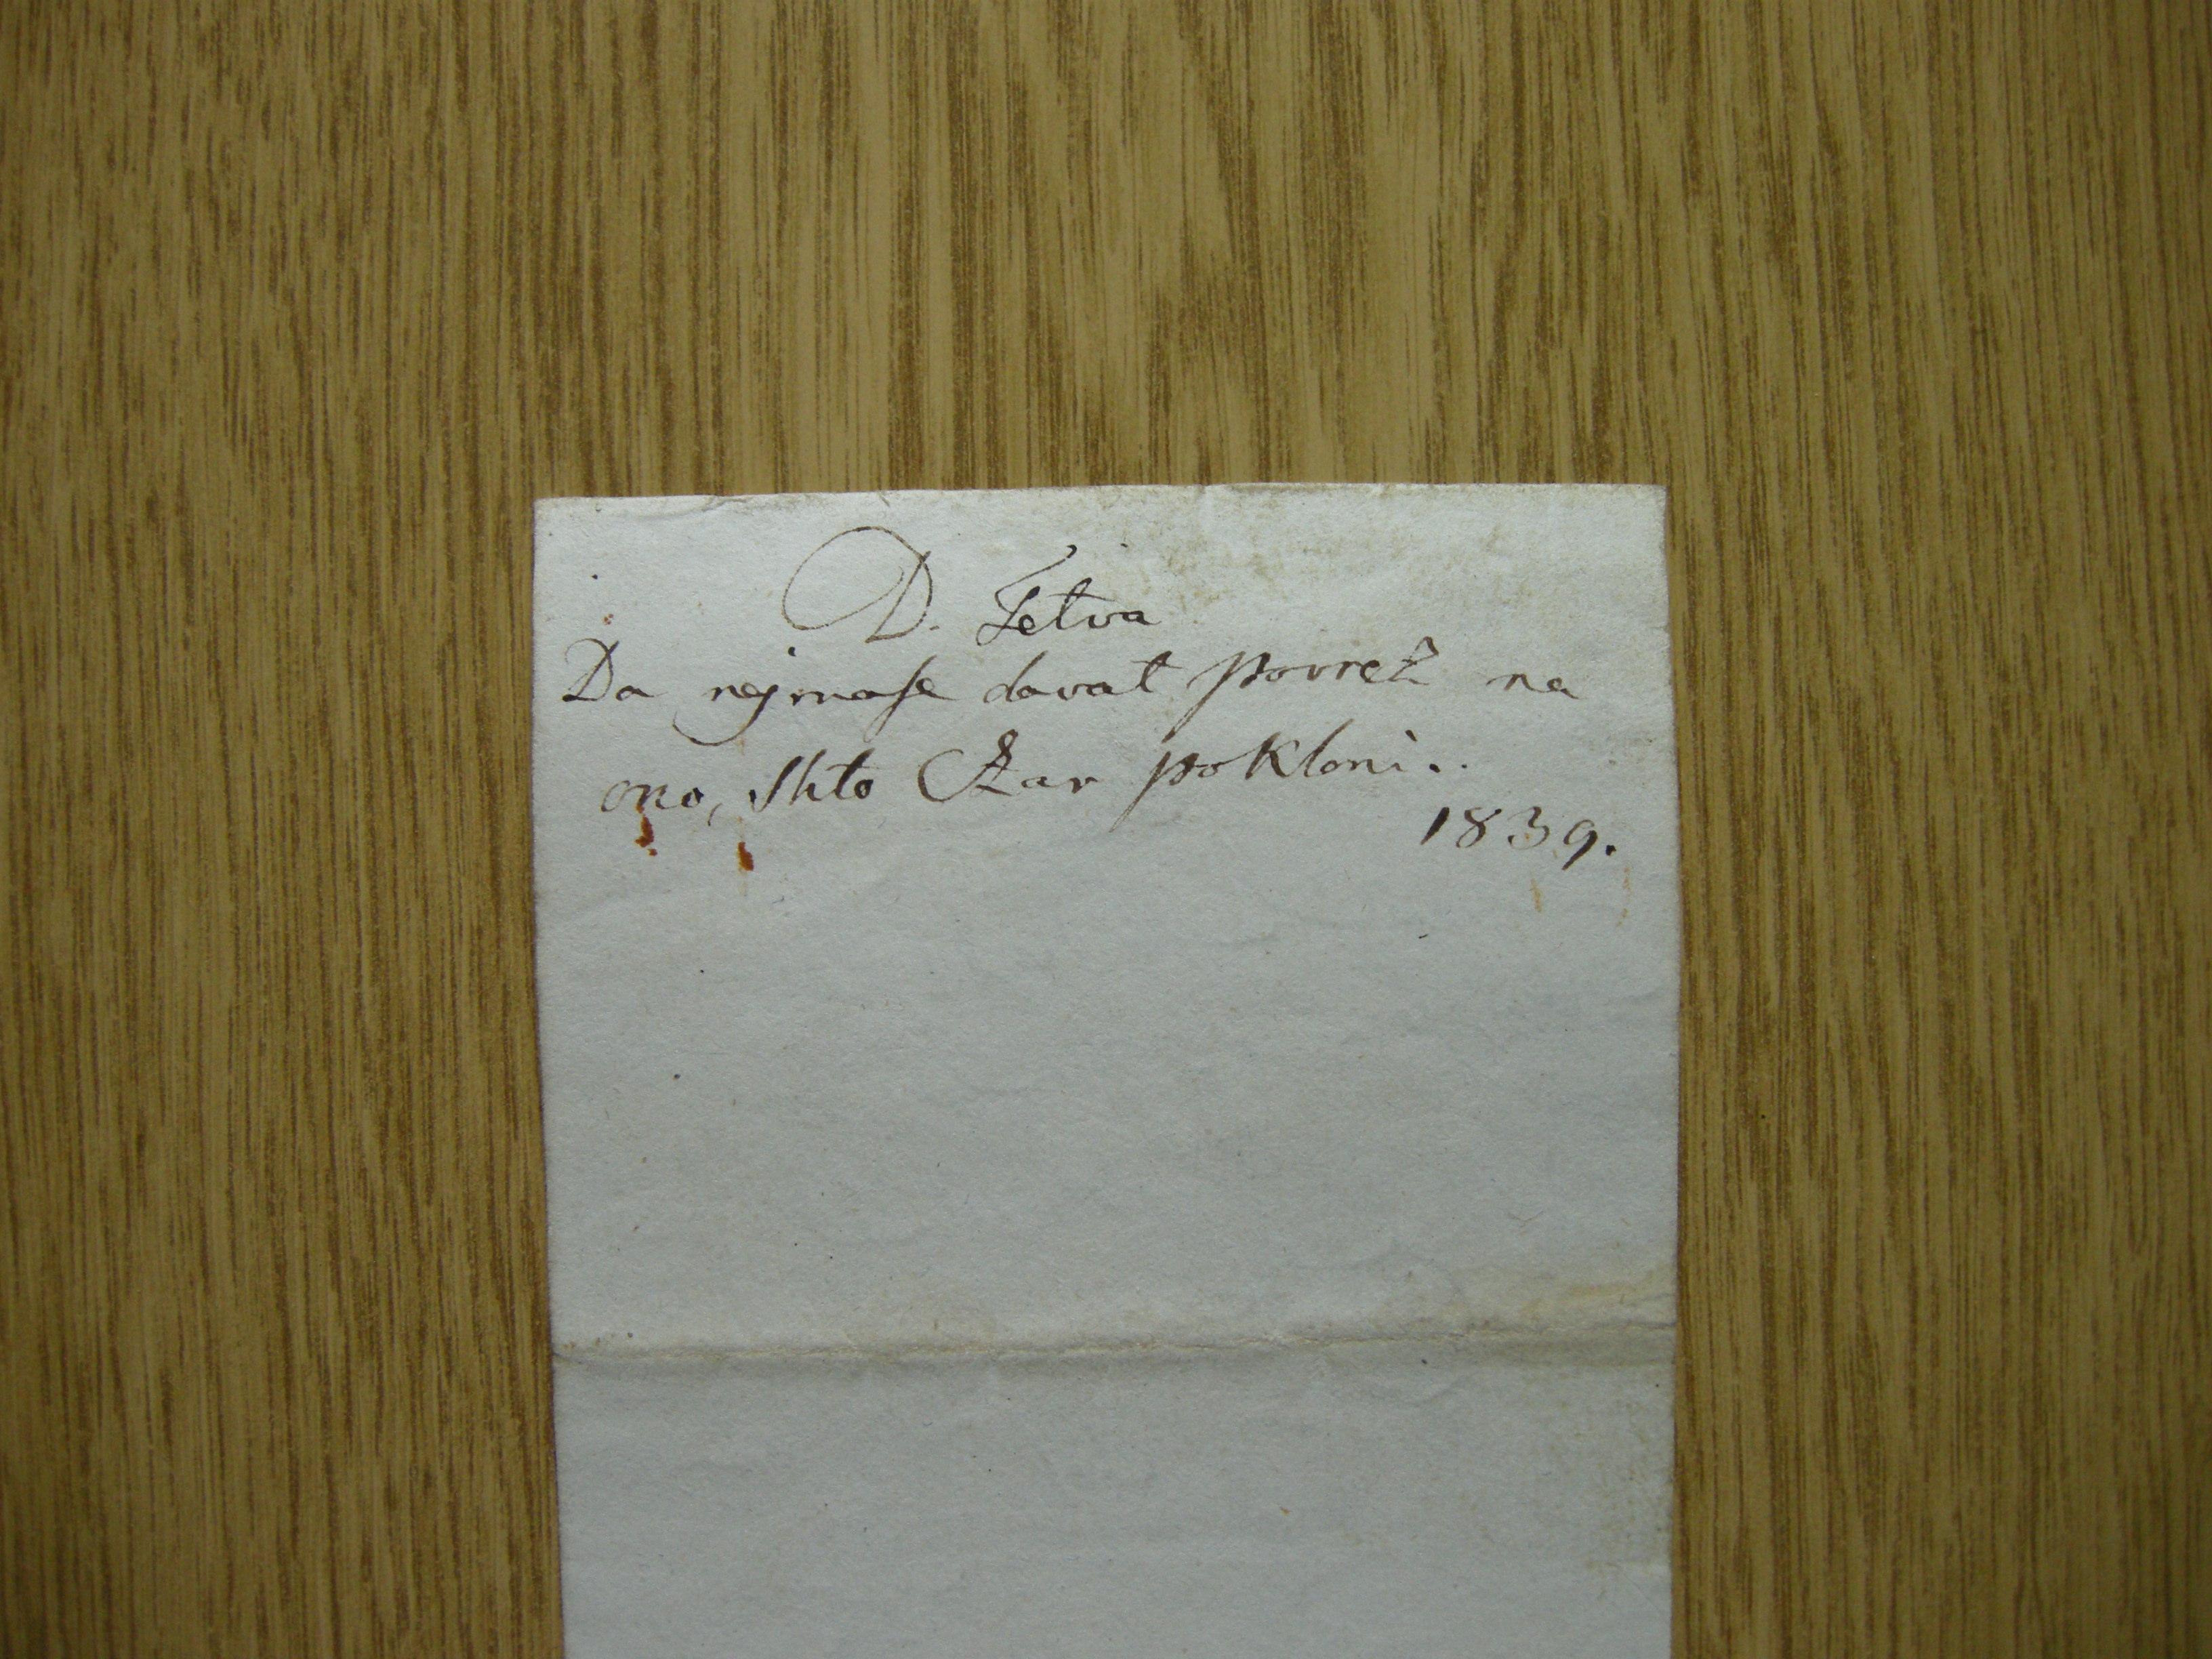 D. Fetva
Da nejmase davat povrez na
ono, shto Czar pokloni.
1839.